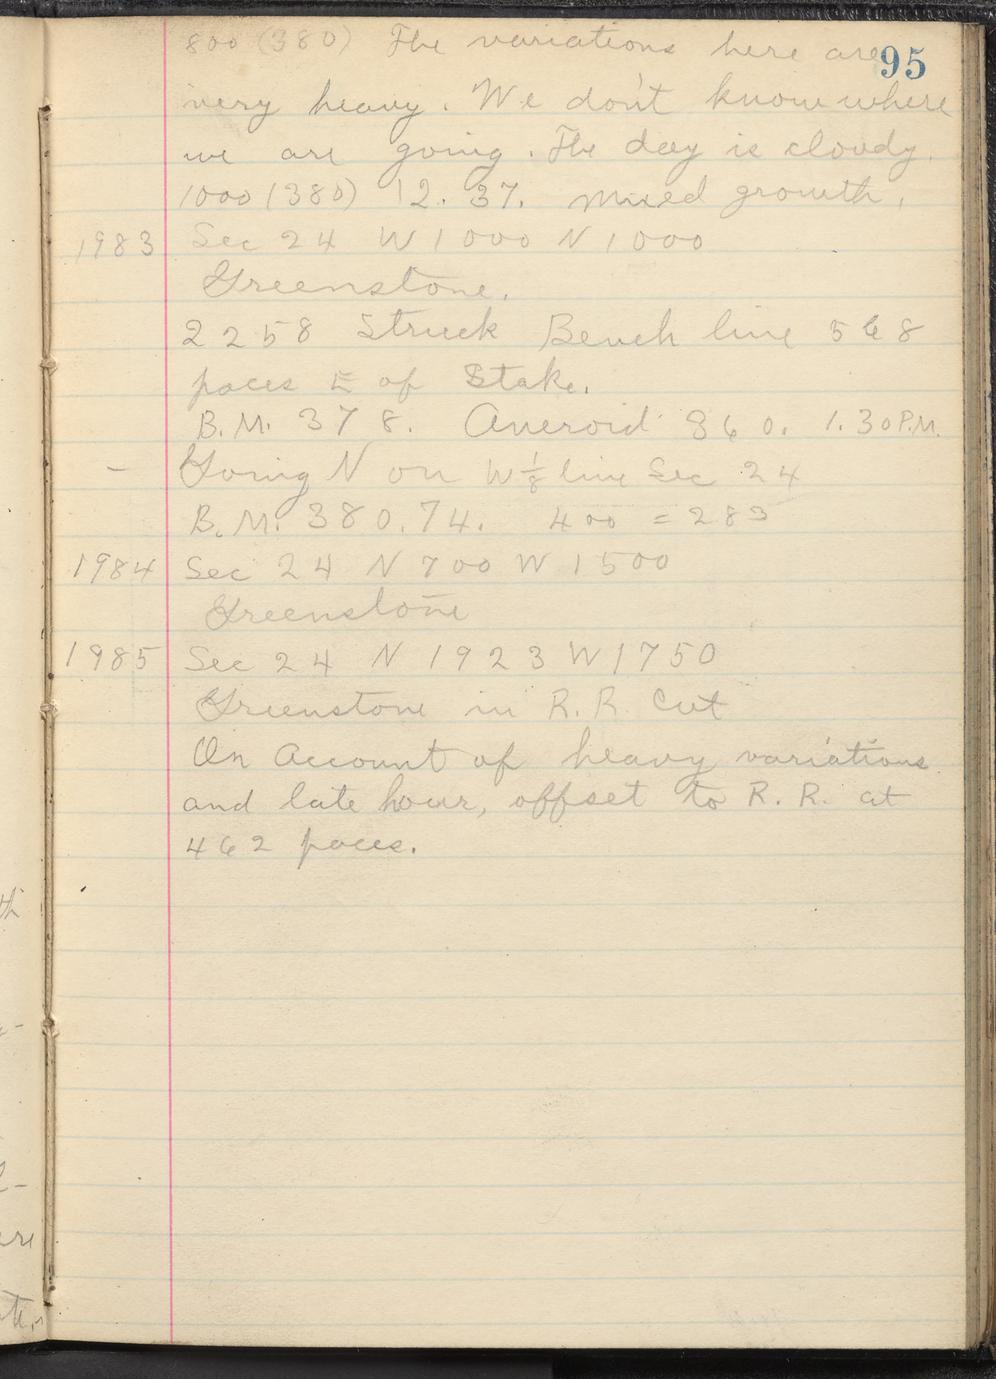 95
800 (380) The variations here are
very heavy. We don't know where
we are going. The day is cloudy.
1000 (380) 12.37. mixed growth.
1983 Sec 24 W 1000 N 1000
Greenstone.
2258 Struck Bench line 568
paces E of Stake.
B.M. 378. Aneroid 360. 1.30 P.M.
– Going N on W 1/8 line Sec 24
B.M. 380.74. 400 = 283
1984 Sec 24 N 700 W 1500
Greenstone
1985 Sec 24 N 1923 W 1750
Greenstone in R.R. Cut
On Account of heavy variations
and late hour, offset to R.R. at
462 paces.